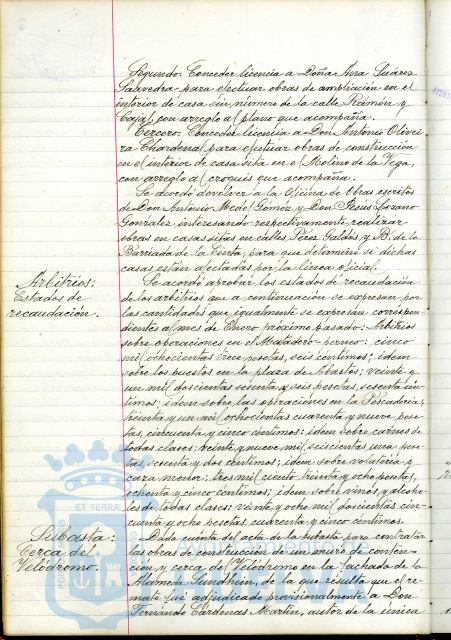 Segundo: Conceder licencia a Doña Ana Suárez
Saavedra para efectuar obras de ampliación en el
interior de casa sin número de la calle Ramón y
Cajal, con arreglo al plano que acompaña.
Tercero: Conceder licencia a Don Antonio Olivei-
ra Chardenal para efectuar obras de construcción
en el interior de casa sita en el Molino de la Vega,
con arreglo al croquis que acompaña.
Se acordó devolver a la Oficina de Obras escritos
de Don Antonio Medel Gómez y Don Jesús Lozano
González interesando respectivamente realizar
obras en casas sitas en calles Pérez Galdós y B. de la
Barriada de la Cinta, para que determine si dichas
casas están afectadas por la línea oficial.
Arbitrios:
Estados de
recaudación.
Se acordó aprobar los estados de recaudación
de los arbitrios que a continuación se expresan por
las cantidades que igualmente se expresan correspon-
dientes al mes de Enero próximo pasado: Arbitrios
sobre operaciones en el Matadero-perneo: cinco
mil ochocientas trece pesetas, seis céntimos; idem
sobre los puestos en la plaza de Abastos; veinte y
un mil doscientas setenta y seis pesetas, sesenta cén-
timos; idem sobre las operaciones en la Pescadería;
treinta y un mil ochocientas cuarenta y nueve pese-
tas, cincuenta y cinco céntimos: idem sobre carnes de
todas clases; veinte y nueve mil seiscientas una pese-
tas, setenta y dos céntimos; idem sobre volatería y
caza menor: tres mil ciento treinta y ocho pesetas,
ochenta y cinco céntimos; idem sobre vinos y alcoho-
les de todas clases: veinte y ocho mil doscientas cin-
cuenta y ocho pesetas, cuarenta y cinco céntimos.
Subasta:
Cerca del
Velódromo.
Dada cuenta del acta de la subasta para contratar
las obras de construcción de un muro de conten-
ción y cerca del Velódromo en la fachada de la
Alameda Sundheim, de la que resulta que el re-
mate fué adjudicado provisionalmente a Don
Fernando Cárdenas Martín, autor de la única
ET TERRÆ